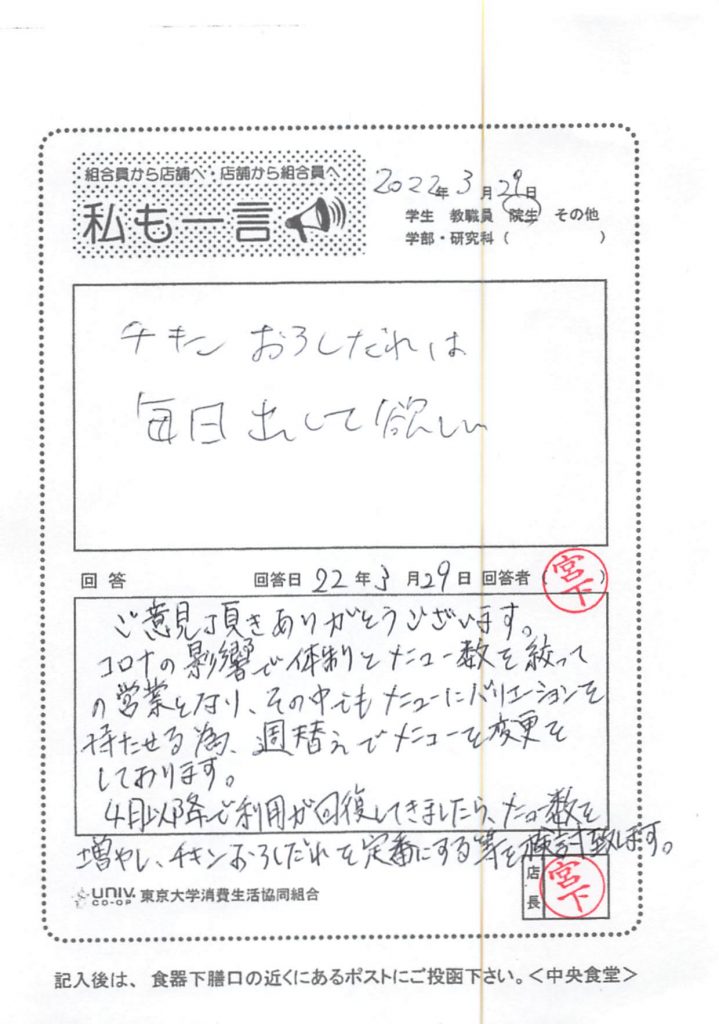 組合員から店舗へ・店舗から組合員へ
私も一言
2022年3月29日
学生 教職員 院生 その他
学部・研究科( )
チキンおろしだれは
毎日出して欲しい
回答 回答日 22年3月29日 回答者(宮下)
ご意見頂きありがとうございます。
コロナの影響で体制とメニュー数を絞って
の営業となり、その中でもメニューにバリエーションを
持たせる為、週替えでメニューを変更を
しております。
4月以降で利用が回復してきましたら、メニュー数を
増やし、チキンおろしだれを定番にする等を検討致します。
店長 宮下
UNIV. CO-OP 東京大学消費生活協同組合
記入後は、食器下膳口の近くにあるポストにご投函下さい。<中央食堂>